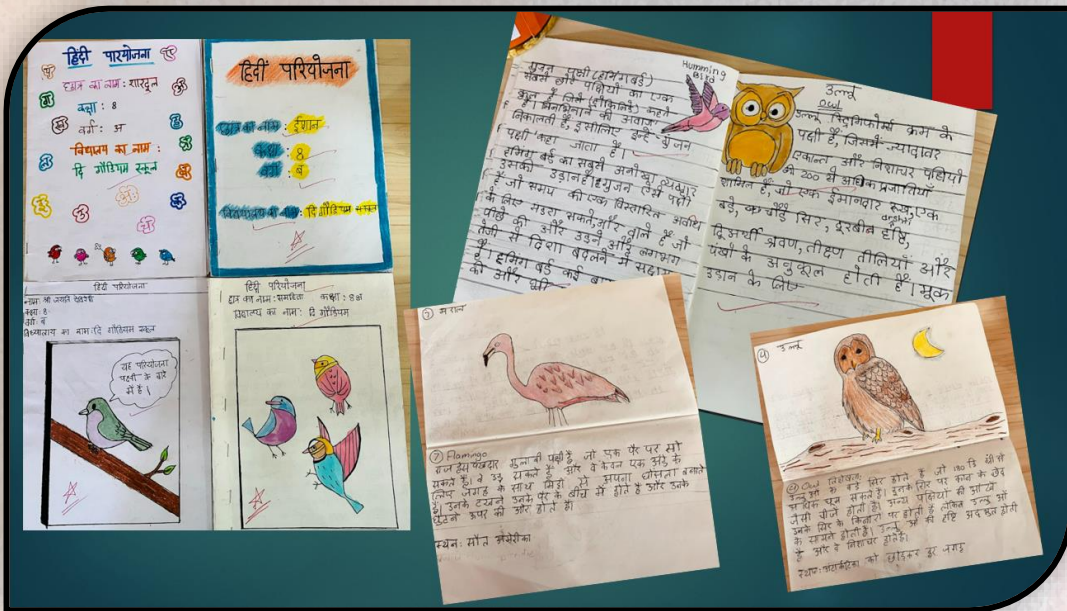 हिंदी परियोजना
छात्र का नाम : शारदूल
कक्षा : 8
वर्ग : अ
विद्यालय का नाम :
दि गौडियम स्कूल
हिंदीं परियोजना
छात्र का नाम : ईशान
कक्षा : 8
वर्ग : ब
विद्यालय का नाम : दि गौडियम स्कूल
हिंदी परियोजना
नाम: श्री जयति
कक्षा : 8
वर्ग : ब
विध्यालय का नाम : दि गौडियम स्कूल
यह परियोजना
पक्षी के बारे
में है।
हिंदी परियोजना
छात्र का नाम : समहिता कक्षा : 8अ
विद्यालय का नाम : दि गौडियम
Humming
Bird
गुंजन पक्षी (हमिंगबर्ड)
सबसे छोटे पक्षियों का एक
कहते
की आवाज
निकालती हैं, इसीलिए इन्हें गुंजन
पक्षी कहा जाता है।
हमिंग बर्ड का सबसे अनोखा
उसकी उड़ान है। गुंजन ऐसे पक्षी
हैं जो समय की एक विस्तारित अवधि
के लिए मंडरा सकते, और वाले हैं जो
पीछे की ओर उड़ने और लगभग
तेजी से दिशा बदलने में सक्षम
हैं। हमिंग बर्ड कई
की ओर
उल्लू
Owl
उल्लू स्ट्रिगिफोर्मा क्रम के
पक्षी हैं, जिसमें ज्यादातर
एकान्त और निशाचर पक्षियों
की 200 से अधिक प्रजातियाँ
शामिल हैं, जो एक ईमानदार रूख, एक
बड़े, चौड़े सिर, दूरबीन दृष्टि,
द्विअर्थी श्रवण, तीक्ष्ण तीलियाँ और
पंखों के अनुकूल होती हैं। मूक
उड़ान के लिए
7
7 Flamingo
गुलाबी पक्षी हैं जो एक पैर पर सो
सकते हैं। वे उड़ सकते हैं और वे केवल एक अंडे के
लिए जगह के साथ मिट्टी से अपना घोंसला बनाते
हैं। उनके टखने उनके पैर के बीच में होते हैं और उनके
घुटने ऊपर की ओर होते हैं।
स्थान : सौत अमेरीका
4 उल्लू
Owl विशेषता:
उल्लूओं के बड़े सिर होते हैं जो 180 डि ग्री से
अधिक घूम सकते हैं। उनके सिर पर कान के छेद
जैसी चीजें होती हैं। अन्य पक्षियों की आँखें
उनके सिर के किनारों पर होती हैं लेकिन उल्लू ओं
के सामने होती हैं। उल्लू ओं की दृष्टि अदभुत होती
है और वे निशाचर होते हैं।
स्थान: अंटार्कटिका को छोड़कर हर जगह